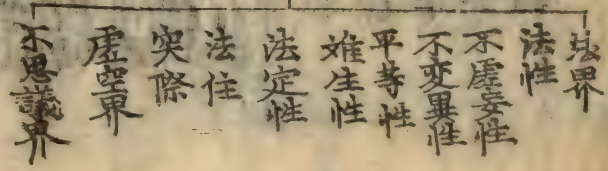 法界
法性
不虚妄性
不変異性
平等性
離生性
法定性
法住
実際
虚空界
不思議界